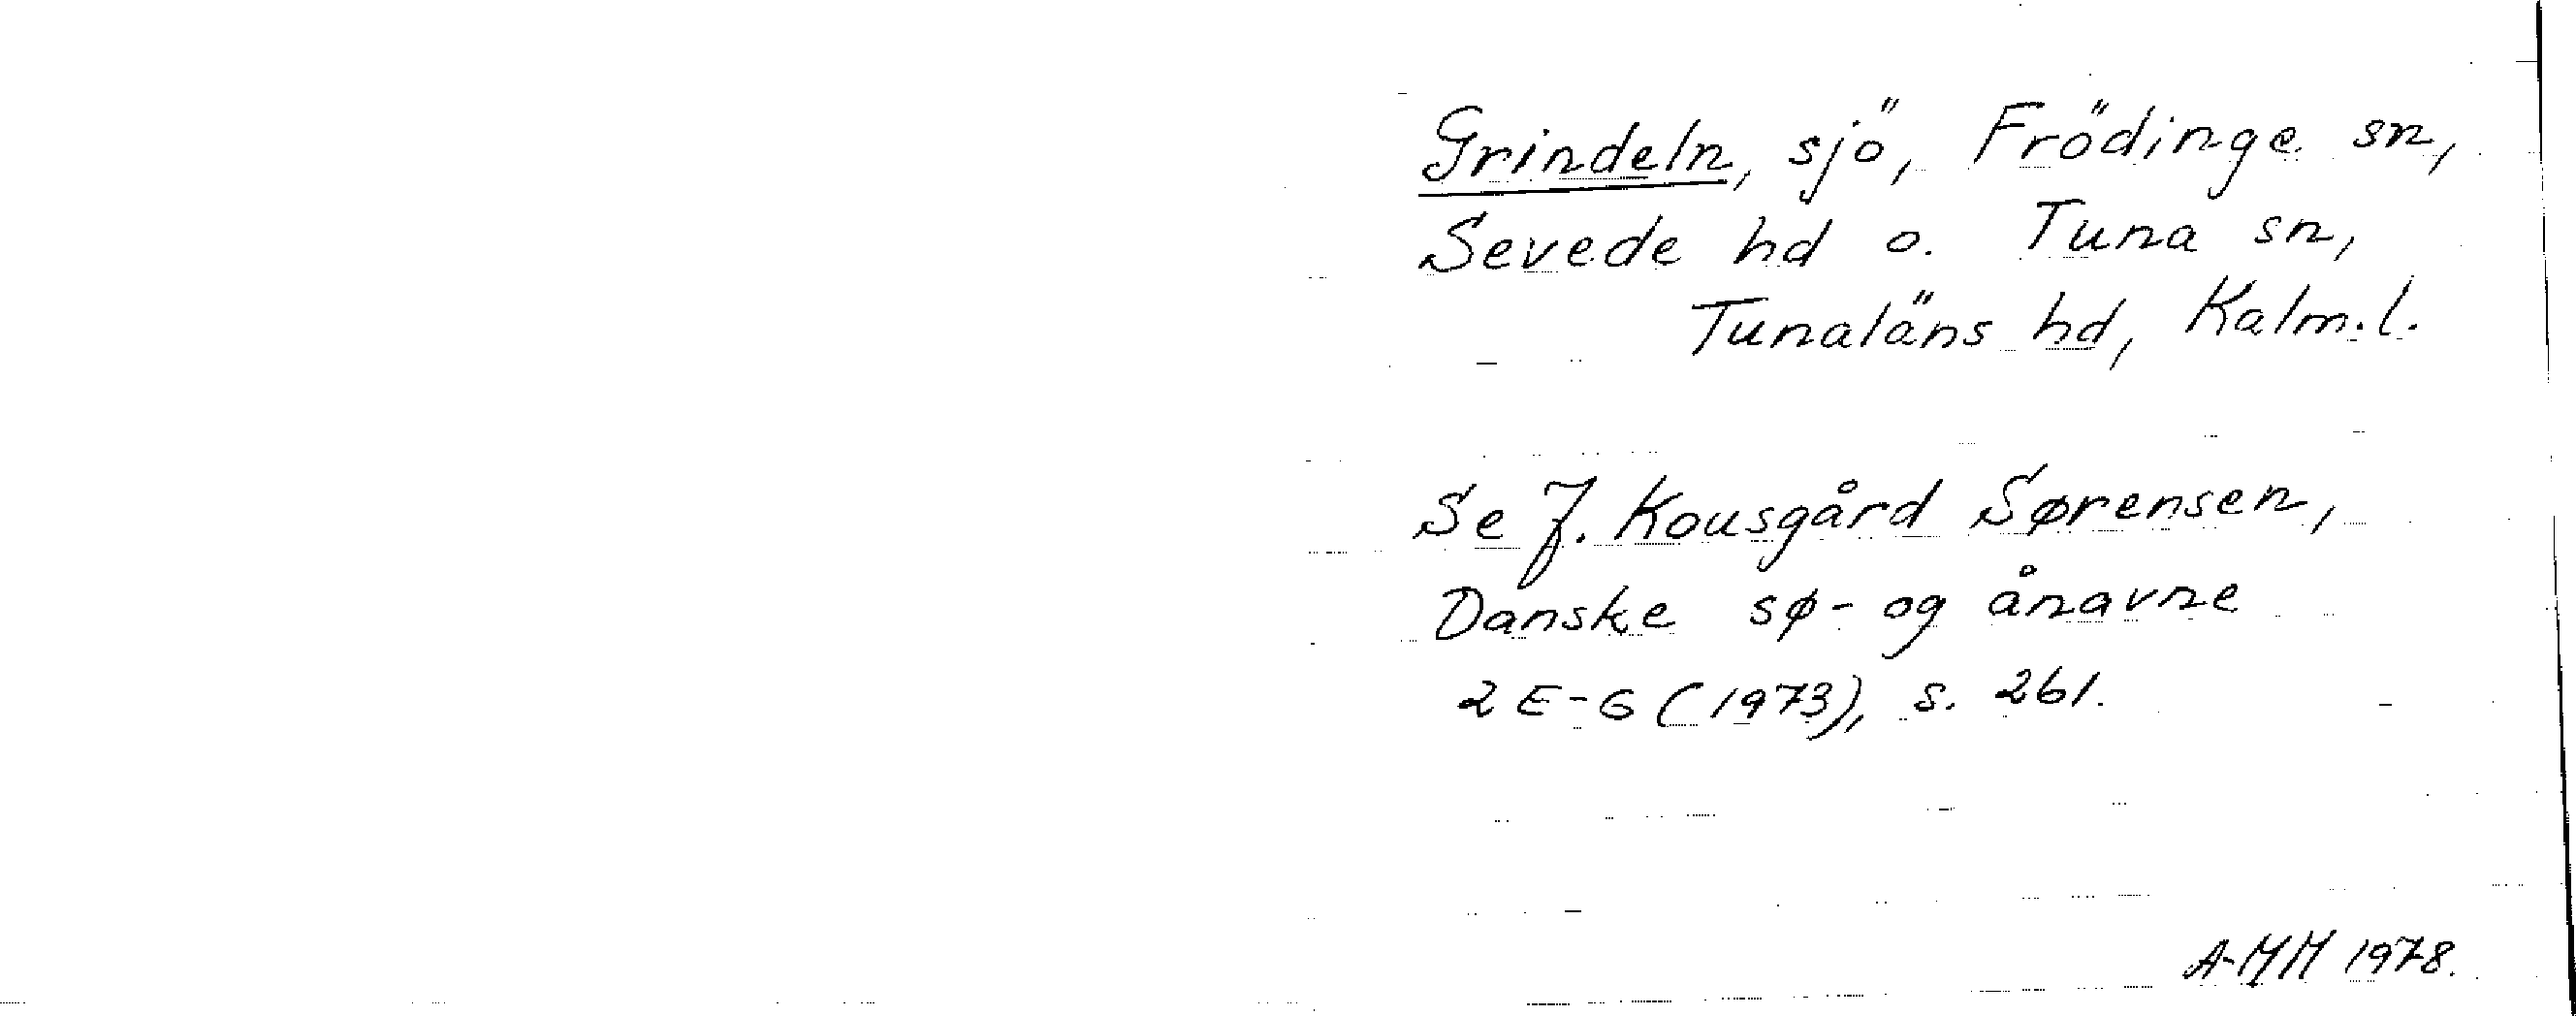 Grindeln, sjö, Frödinge sn,
Sevede hd o. Tuna sn,
Tunaläns hd, Kalm.l.
Se J. Kousgård Sørensen,
Danske sø- og ånavne
2 E-G (1973), s. 261.
A-MM 1978.